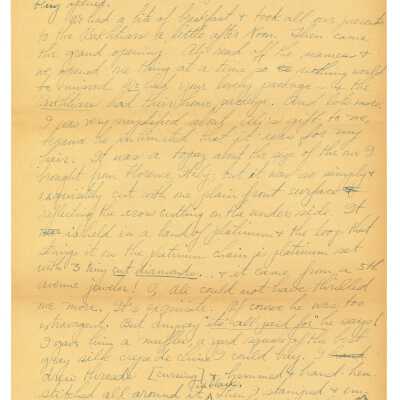 being opened.
We had a bite of breakfast & took all our presents
to the Architian a little after noon. Then came
the grand opening. Al read off the names &
we opened one thing at a time so nothing would
be missed. We had your lovely package & the
had their home, prodigy. And lots more.
I was very mystified about Al's gift to me,
beyond he intimated that it was for my
hair. It was a topaz about the size of the one I
bought from Florence, Italy, but it was so simply &
exquisitely cut with one plain front surface
reflecting the cross cutting on the under side. It
is held in a band of platinum & the loop that
strings it on the platinum chain is platinum set
with 3 tiny cut diamonds. & it came from a 5th
avenue jeweler! O, Ale could not have thrilled
me more. It's exquisite. Of course he was too
extravagant. But anyway "its all paid for" he says!
I gave him a muffler, a yard square of the best
gray silk crepe de chine I could buy. I
drew threads [cursing] & hemmed & hand hem
stitched all around it. Then I stamped & em